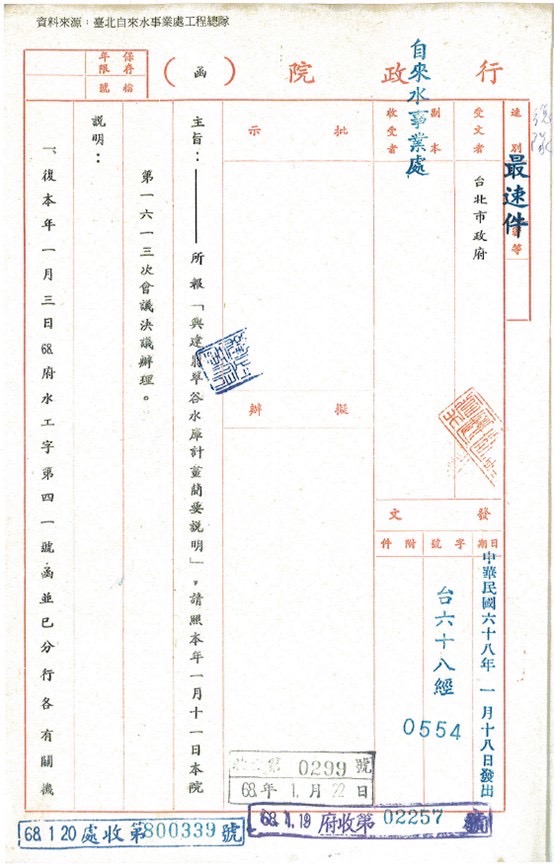 資料來源：臺北自來水事業處工程總隊
行政院（函）
保存年限
檔號
速別
最速件
受文者
台北市政府
副本收受者
自來水事業處
批示
擬辦
發文
日期
字號
附件
中華民國六十八年一月十八日發出
台六十八經
0554
主旨：——所報「興建翡翠谷水庫計畫簡要說明」，請照本年一月十一日本院
第一六一三次會議決議辦理。
說明：
一、復本年一月三日68府水工字第四一號函並已分行各有關機
0299號
68年1.月22日
68.1.19府收第02257號
68 1 20處收第800339號